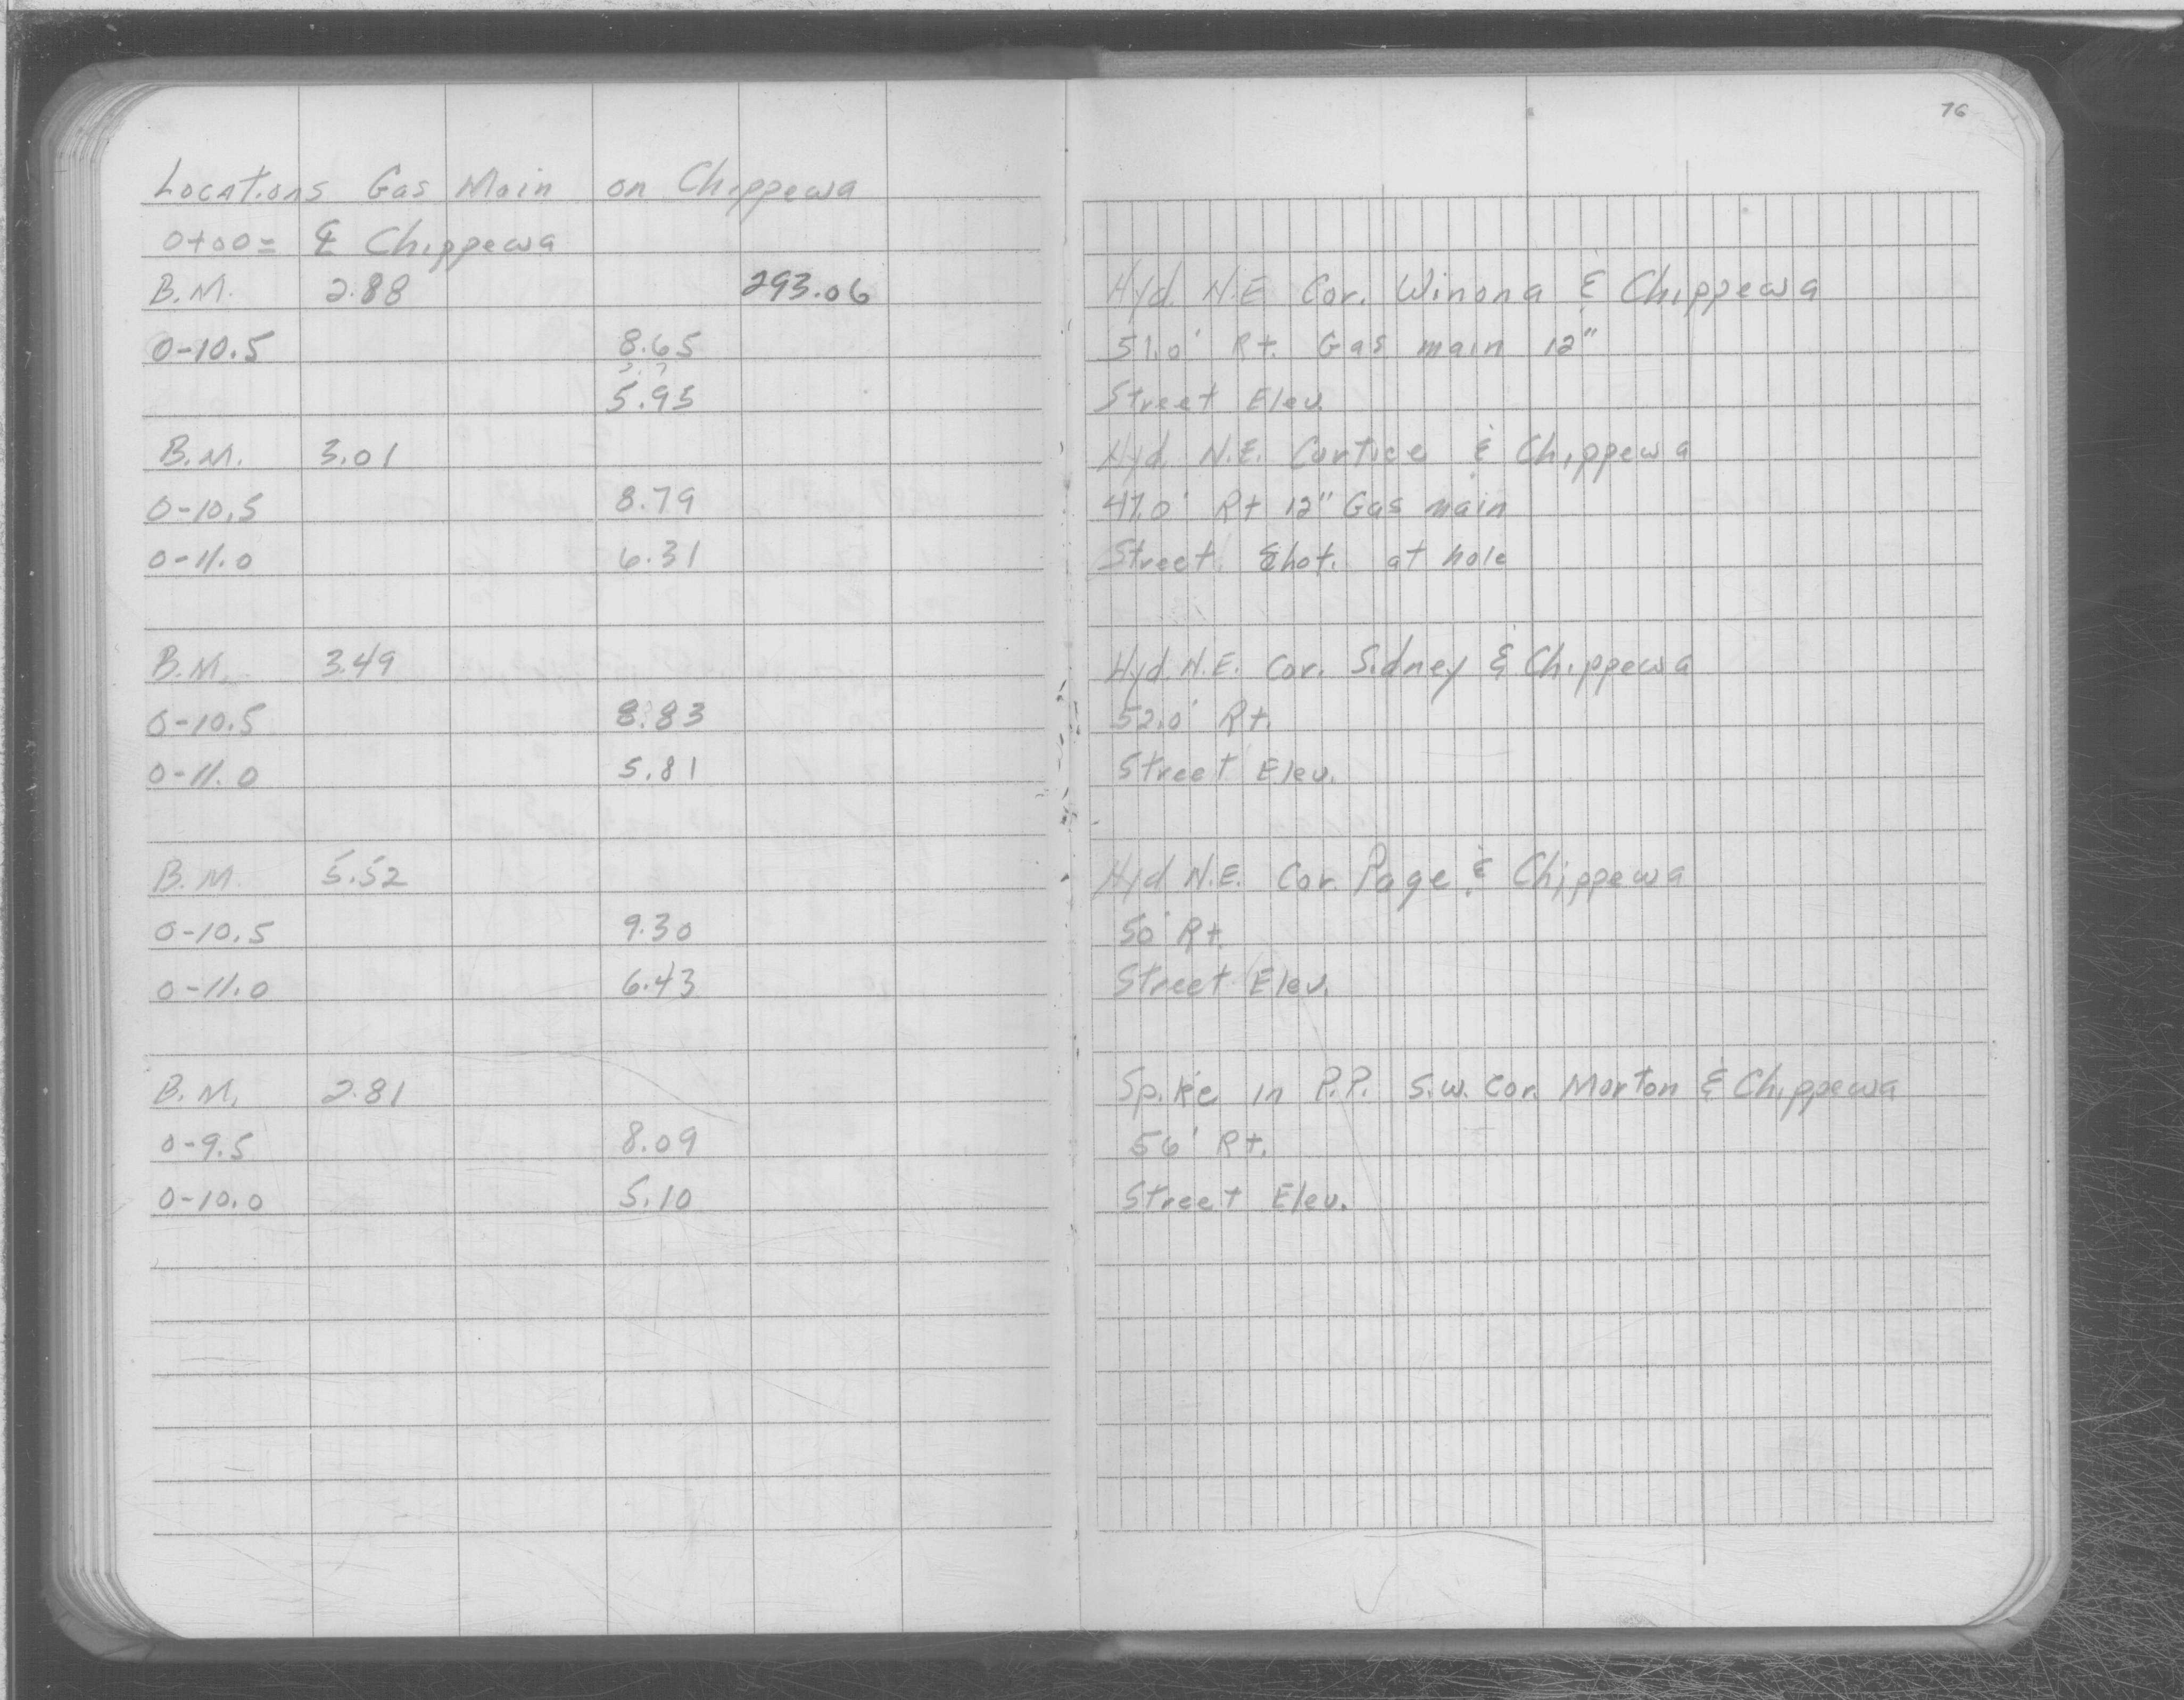 76
Locations Gas Main on Chippewa
0+00= ℄ Chippewa
B.M. 2.88 293.06 Hyd. N.E. Cor. Winona & Chippewa
0-10.5 8.65 51.0' Rt. Gas main 12"
5.95 Street Elev.
B.M. 3.01 Hyd. N.E. Curtice & Chippewa
0-10.5 8.79 47.0' Rt 12" Gas main
0-11.0 6.31 Street Shot. at hole
B.M. 3.49 Hyd. N.E. Cor. Sidney & Chippewa
0-10.5 8.83 52.0' Rt.
0-11.0 5.81 Street Elev.
B.M. 5.52 Hyd N.E. Cor. Page & Chippewa
0-10.5 9.30 50' Rt.
0-11.0 6.43 Street Elev.
B.M. 2.81 Spike in P.P. S.W. Cor. Morton & Chippewa
0-9.5 8.09 56' Rt.
0-10.0 5.10 Street Elev.